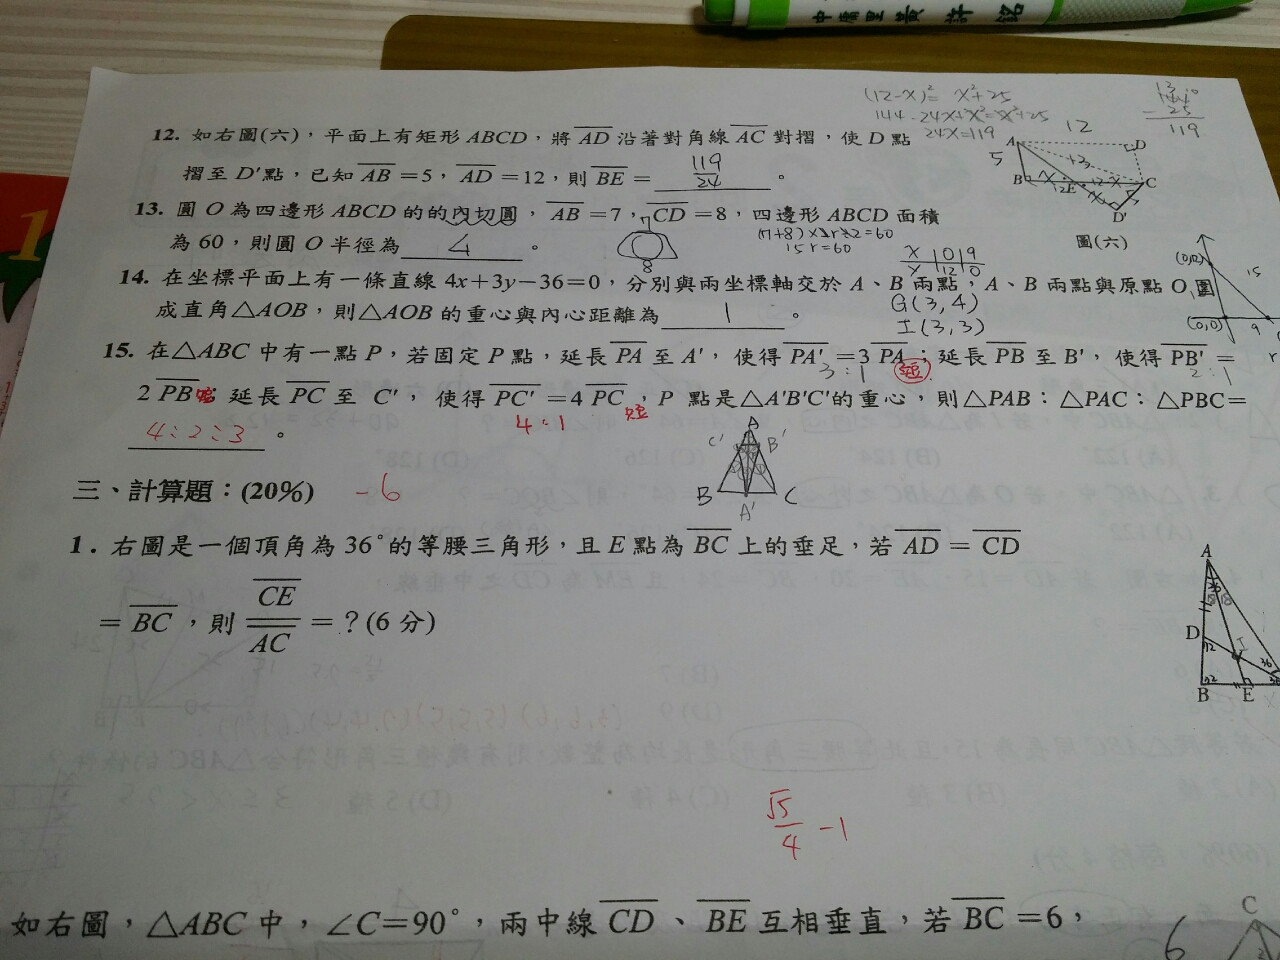 中庸里 黃許銘
(12-x)²= x²+25
144-24x+x²=x²+25
24x=119
119
12. 如右圖(六),平面上有矩形ABCD,將AD沿著對角線AC對摺,使D點
摺至D′點,已知AB=5,AD=12,則BE= 119/24 。
12
5
13
A
D
B
E
C
D′
圖(六)
13. 圓O為四邊形ABCD的的內切圓,AB=7,CD=8,四邊形ABCD面積
為60,則圓O半徑為 4 。
7
8
(7+8)×r×2÷2=60
15r=60
x 0 9
y 12 0
14. 在坐標平面上有一條直線4x+3y-36=0,分別與兩坐標軸交於A、B兩點,A、B兩點與原點O圍
成直角△AOB,則△AOB的重心與內心距離為 1 。
G(3,4)
I(3,3)
15
(0,0)
9
15. 在△ABC中有一點P,若固定P點,延長PA至A′,使得PA′=3PA;延長PB至B′,使得PB′=
3:1
短
2:1
2PB;延長PC至C′,使得PC′=4PC,P點是△A′B′C′的重心,則△PAB:△PAC:△PBC=
4:1
短
4:2:3 。
A
C′
B′
B
C
A′
三、計算題:(20%)
-6
1. 右圖是一個頂角為36°的等腰三角形,且E點為BC上的垂足,若AD=CD
=BC,則CE/AC=?(6分)
A
D
I
72
36
B
E
√5/4 -1
如右圖,△ABC中,∠C=90°,兩中線CD、BE互相垂直,若BC=6,
6
C